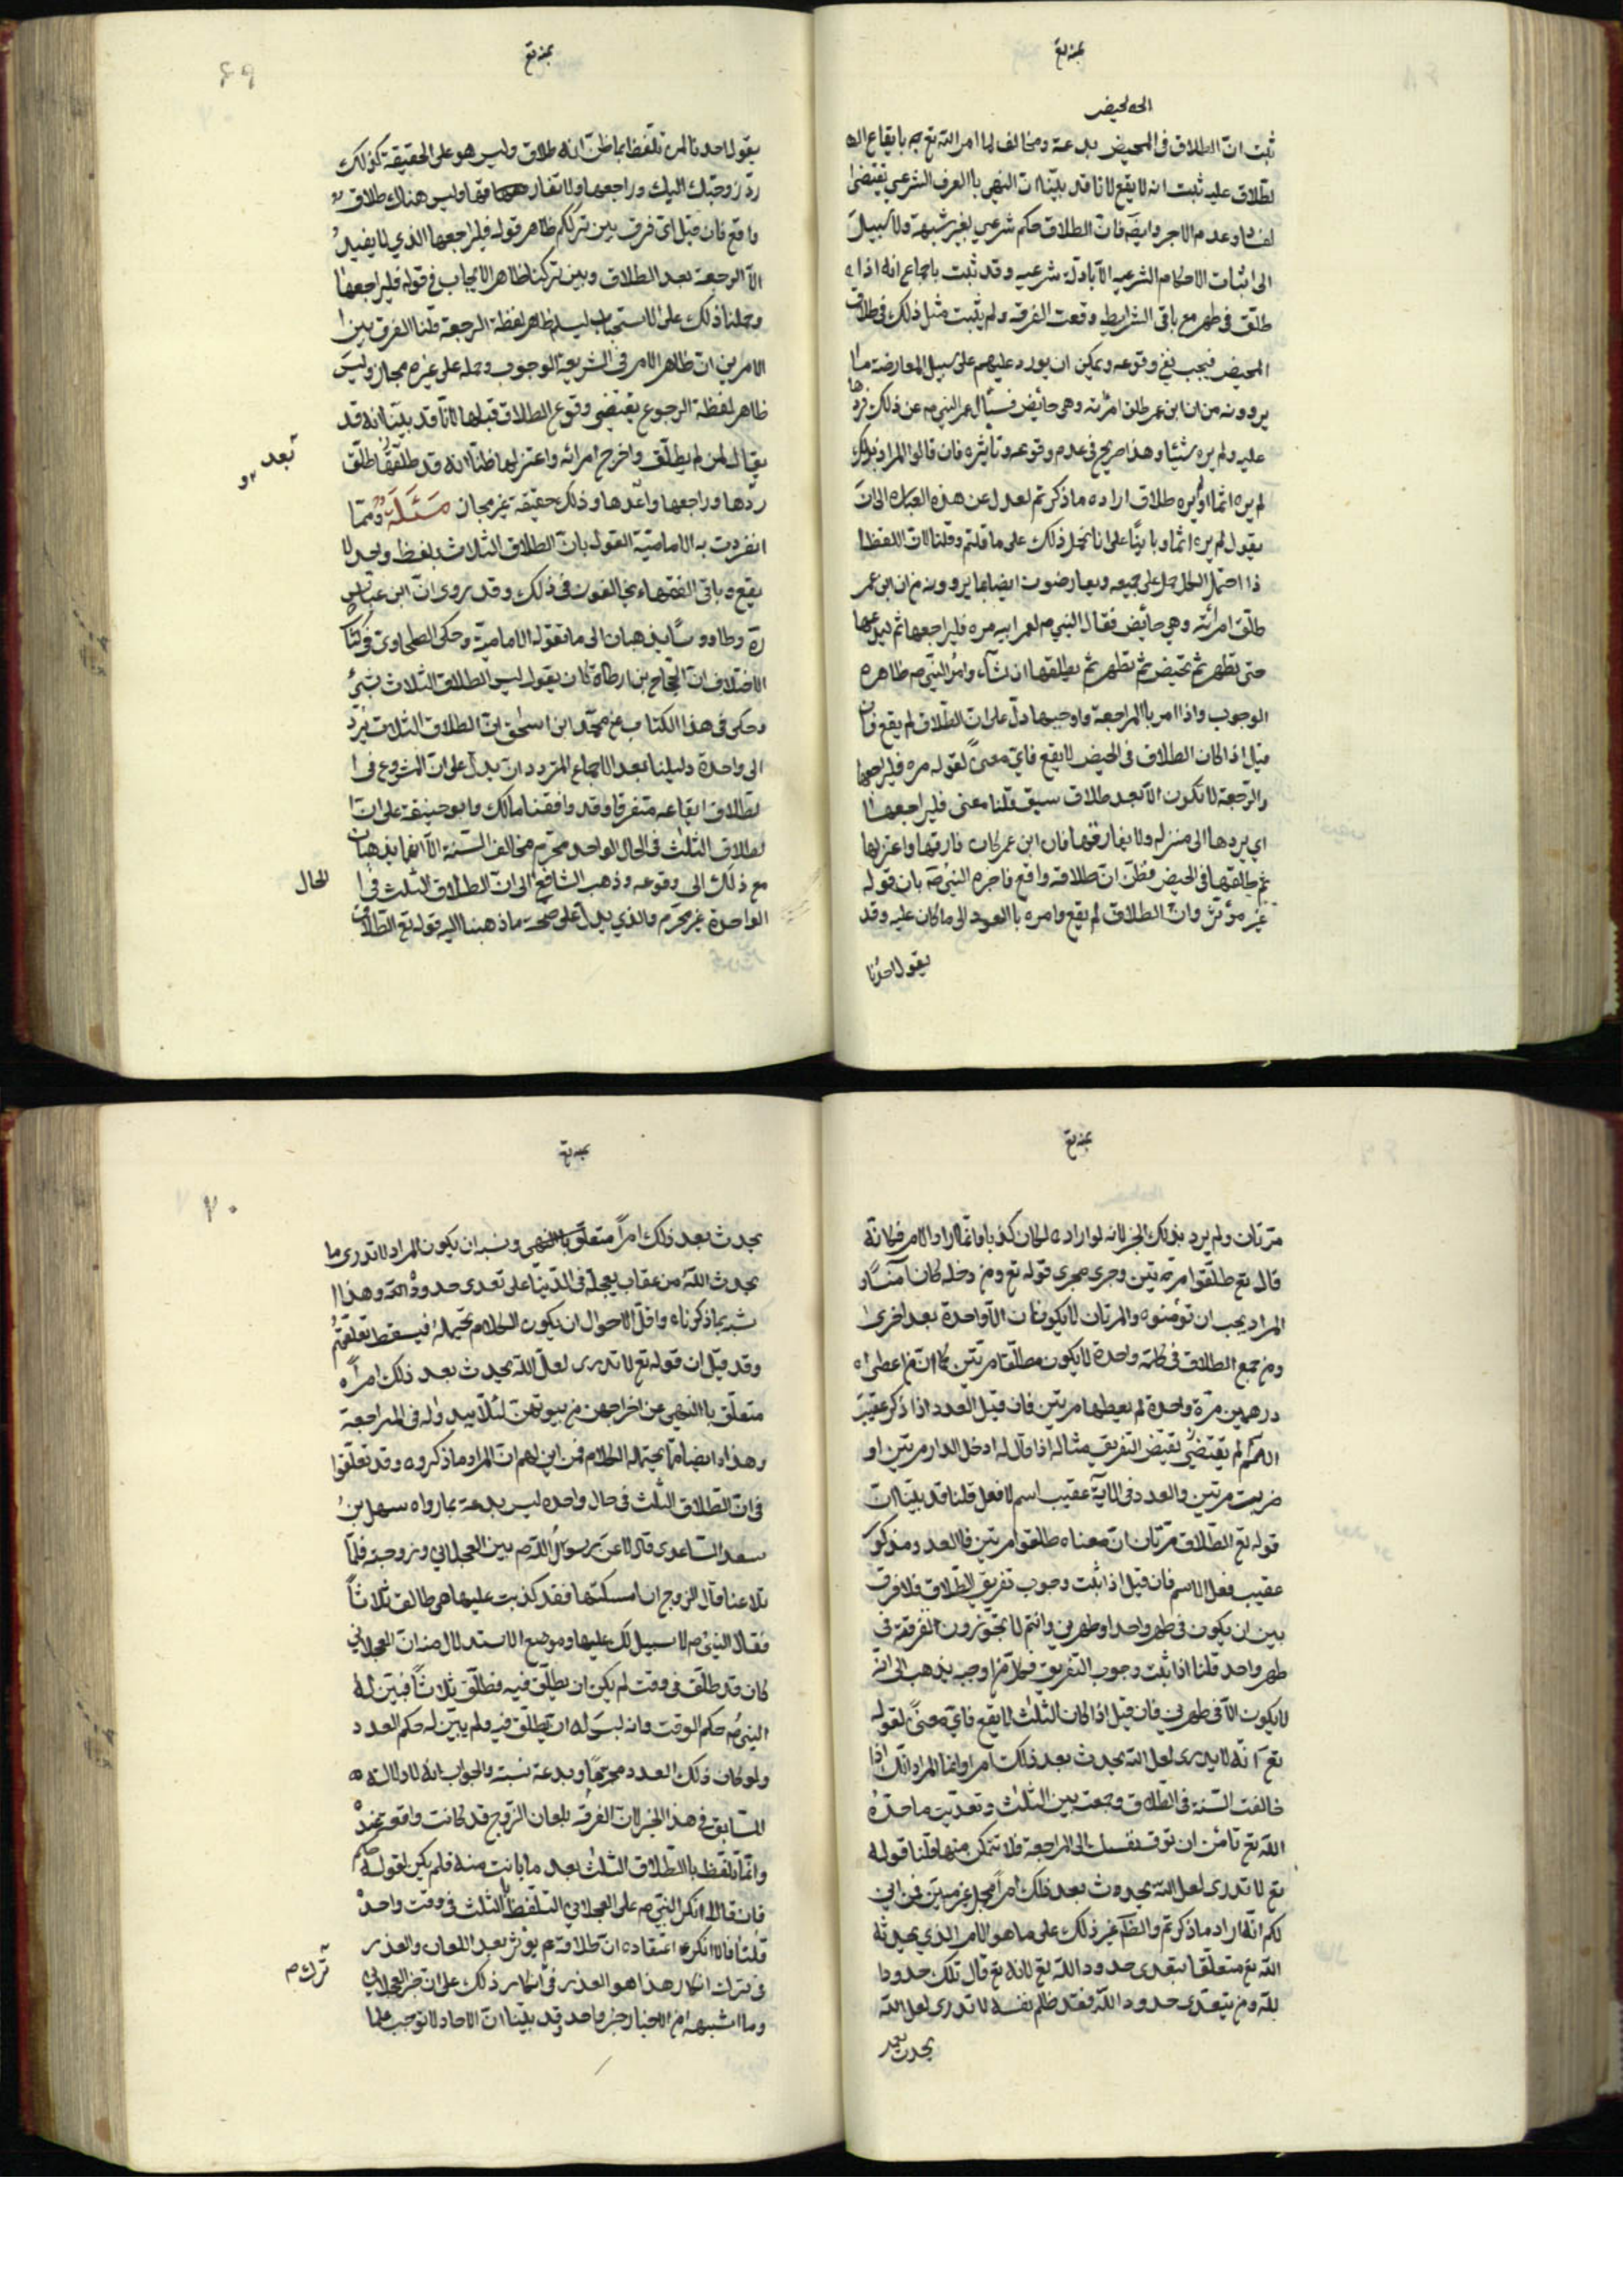 بمنه تع
الحه لحيض
ثبت ان الطلاق فى المحيض بدعة ومخالف لما امر الله تع به بايقاع اله
لطلاق عليه ثبت انه لا يقع لانا قد بيّنا ان النهى با العرف الشرعي يقتضى
لفساد وعدم الاجر وايضه فان الطلاق حكم شرعي بغير شبهة ولا سبيل
الى اثبات الاحكام الشرعيه الا بادلة شرعيه وقد ثبت باجماع انه اذا
طلّق فى طهر مع باقى الشرايط وقعت الفرقه ولم يثبت مثل ذلك فى طلاق
المحيض فيجب نفي وقوعه ويمكن ان يورد عليهم على سبيل المعارضة ما
يروونه من ان ابن عمر طلق امرئته وهى حائض فسئال عمر النبي ص عن ذلك فردها
عليه ولم يره شيئا وهذا صريح فى عدم وقوعه وتأثيره فان قالوا المراد بذلك
لم يره اثما او لم يره طلاق اراده ما ذكرتم لعدل عن هذه العبارة الى ان
يقول لم يره اثما وباينًا على انا نحمل ذلك على ما قلتم وقلنا لان اللفظ
ذا احتمل الكل حمل على جميعه ويعارضون ايضا بما يروونه من ان ابن عمر
طلّق امرئته وهي حائض فقال النبي ص لعمر ابيه مره فليراجعها ثم ليدعها
حتى تطهر ثم تحيض ثم تطهر ثم يطلقها ان شآء وامر النبي ص ظاهره
الوجوب واذا امر با المراجعة واوجبها دلّ على ان الطّلاق لم يقع فان
قيل اذا كان الطلاق فى الحيض لا يقع فايّ معنىً لقوله مره فليراجعها
والرّجعة لا تكون الّا بعد طلاق سبق قلنا معنى فليراجعها
اي يردها الى منزله ولا يفارقها فان ابن عمر كان فارقها واعتزلها
ثم طلقها فى الحيض فظنّ انّ طلاقه واقع فاخبره النبي ص بان قوله
غير مؤثر وان الطلاق لم يقع وامره با العود الى ما كان عليه وقد
يقول احدنا
بمنه تع
٦٩
يقول احدنا لمن تلفظ بما ظنّ انه طلاق وليس هو على الحقيقة كذلك
ردّ زوجتك اليك وراجعها ولا تفارقها وليس هناك طلاق
واقع فان قيل اى فرق بين ترككم ظاهر قوله فليراجعها الذي لا يفيد
الّا الرجعة بعد الطلاق وبين تركنا ظاهر الايجاب فى قوله فليراجعها
وحملنا ذلك على الاستحباب ليسلم ظاهر لفظة الرجعة قلنا الفرق بين
الامرين ان ظاهر الامر فى الشريعة الوجوب وحمله على غيره مجاز وليس
ظاهر لفظة الرجوع يقتضى وقوع الطلاق قبلها لانّا قد بيّنا انه قد
يقال لمن لم يطلّق واخرج امرائه واعتزلها ظنًّا انه قد طلّقها طلّق
بعد
ردّها وراجعها واعدها وذلك حقيقة غير مجاز مَسْئَلَة وممّا
انفردت به الامامية القول بانّ الطلاق الثلاث بلفظ واحد لا
يقع وباقى الفقهاء يخالفون فى ذلك وقد روى انّ ابن عباس
ره وطاووسًا يذهبان الى ما تقوله الامامية وحكى الطحاوى فى كتاب
الاختلاف ان الحجاج بن ارطاة كان يقول ليس الطلاق الثلاث بشئ
وحكى فى هذا الكتاب عن محمّد ابن اسحق انّ الطلاق الثلاث يردّ
الى واحدة دليلنا بعد الاجماع المتردد ان يدلّ على ان المشروع فى ا
لطلاق ايقاعه متفرقا وقد وافقنا مالك وابو حنيفة على ان ا
لطلاق الثلث فى الحال الواحد محرّم مخالف السّنة الّا انهما يذهبان
مع ذلك الى وقوعه وذهب الشافعى الى ان الطلاق الثلث فى ا
لحال
الواحدة غير محرّم والذي يدلّ على صحّة ما ذهبنا اليه قوله تع الطلاق
بمنه تع
مرّتان ولم يرد بذلك الخبر لانه لو اراده لكان كذبا وانّما اراد الامر فكانّه
قال تع طلّقوا مرّتين وجرى مجرى قوله تع ومن دخله كان آمنًا و
المراد يجب ان تؤمنوه والمرتان لا يكونان الّا واحدة بعد اخرى
ومن جمع الطلاق فى كلمة واحدة لا يكون مطلّقا مرتين كما انّ من اعطى
درهمين مرّة واحدة لم يعطها مرتين فان قيل العدد اذا ذكر عقيب
الاسم لم يقتضى يقتض التفريق مثاله اذا قال له ادخل الدار مرتين او
ضربت مرتين والعدد فى الآية عقيب اسم لا فعل قلنا قد بيّنا ان
قوله تع الطّلاق مرّتان انّ معناه طلقوا مرتين فالعدد مذكور
عقيب فعل لا اسم فان قيل اذا ثبت وجوب تفريق الطلاق فلا فرق
بين ان يكون فى طهر واحد او طهرين وانتم لا تجوّزون الفرقة فى
طهر واحد قلنا اذا ثبت وجوب التفريق فكلّ من اوجبه يذهب الى انّه
لا يكون الّا فى طهرين فان قيل اذا كان الثلث لا يقع فايّ معنىً لقوله
تع انّه لا يدرى لعل الله يحدث بعد ذلك امرا وانما المراد انّك اذا
خالفت السّنة فى الطّلاق وجمعت بين الثلث وتعدّيت ما حدّه
اللّه تع تأمن ان تتوق نفسك الى المراجعة فلا تتمكن منها قلنا قوله
تع لا تدرى لعل اللّه يحدث بعد ذلك امراً مجمل غير مبيّن فمن اين
لكم انّه اراد ما ذكرتم والظاهر غير ذلك على ما هو الامر الذي يحدثه
الله تع متعلّقا بتعدى حدود اللّه تع لانه تع قال تلك حدود ا
للّه ومن يتعدّى حدود اللّه فقد ظلم نفسه لا تدرى لعل اللّه
يحدث بعد
بمنه تع
٧٠
يحدث بعد ذلك امراً متعلّق با النهى ونسبه ان يكون المراد لا تدرى ما
يحدث اللّه من عقاب يعجله فى الدّنيا على تعدى حدود اللّه وهذا ا
شبه بما ذكرناه واقلّ الاحوال ان يكون الكلام تحتمله فيسقط تعلّقهم
وقد قيل ان قوله تع لا تدرى لعلّ اللّه يحدث بعد ذلك امراً
متعلّق با النهى عن اخراجهن من بيوتهنّ لئلّا يبدو له فى المراجعة
وهذا ايضا ممّا يحتمله الكلام فمن اين لهم انّ المراد ما ذكروه وقد تعلّقوا
فى انّ الطّلاق الثلث فى حال واحده ليس بدعة بما رواه سهل بن
سعد الساعدى قال لاعن رسول اللّه ص بين العجلاني وزوجته فلمّا
تلاعنا قال الزوج ان امسكتها فقد كذبت عليها هى طالق ثلاثاً
فقال النبي ص لا سبيل لك عليها وموضع الاستدلال منه انّ العجلاني
كان قد طلّق فى وقت لم يكن ان يطلّق فيه فطلّق ثلاثاً فبيّن له
النبي ص حكم الوقت وانه ليس له ان يطلّق فيه ولم يبين له حكم العدد
ولو كان ذلك العدد محرّمًا وبدعة نبيّنه والجواب انه لا دلالة
للسّابق فى هذا الخبر لانّ الفرقه بلعان الزوج قد كانت واقعة عنده
وانّما تلفّظ با الطلاق الثلث بعد ما بانت منه فلم يكن لقوله حكم
فان قالوا انكر النّبي ص على العجلاني التلفّظ الثلث فى وقت واحد
قلنا فالّا انكر اعتقاده انّ طلاقه يؤثر بعد اللعان والعذر
فى ترك انكار هذا هو العذر فى انكار ذلك على ان خبر العجلاني
ترك ص
وما اشبهه من الاخبار خبر واحد وقد بيّنا انّ الآحاد لا توجب علما